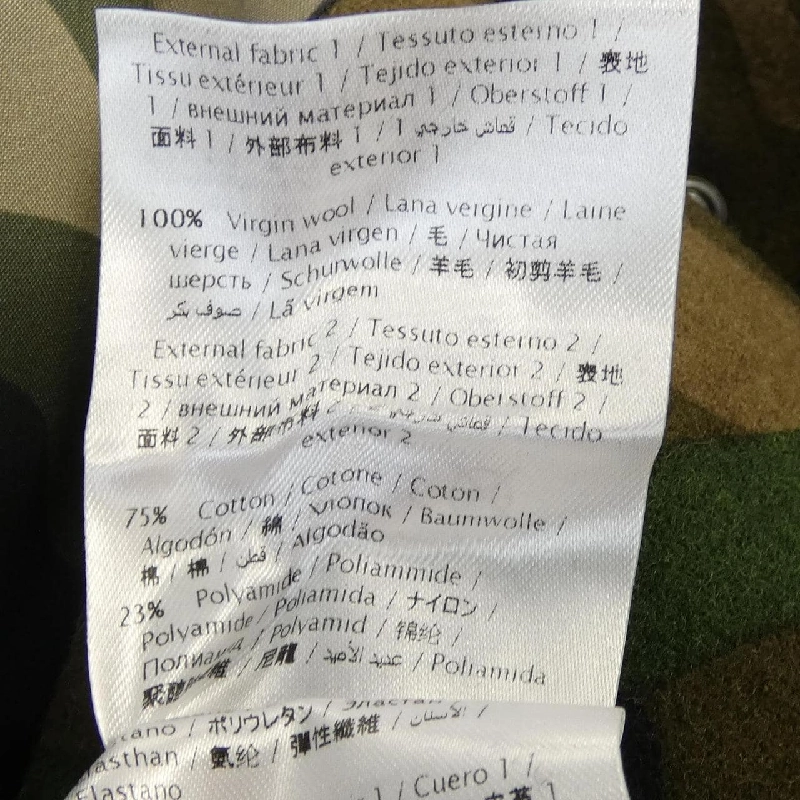 External fabric 1 / Tessuto esterno 1 /
Tissu extérieur 1 / Tejido exterior 1 / 表地
1 / внешний материал 1 / Oberstoff 1 /
面料 1 / 外部布料 1 / قماش خارجي 1 / Tecido
exterior 1
100% Virgin wool / Lana vergine / Laine
vierge / Lana virgen / 毛 / Чистая
шерсть / Schurwolle / 羊毛 / 初剪羊毛 /
صوف بكر / Lã virgem
External fabric 2 / Tessuto esterno 2 /
Tissu extérieur 2 / Tejido exterior 2 / 表地
2 / внешний материал 2 / Oberstoff 2 /
面料 2 / 外部布料 2 / قماش خارجي / Tecido
exterior 2
75% Cotton / Cotone / Coton /
Algodón / 綿 / Хлопок / Baumwolle /
棉 / 棉 / قطن / Algodão
23% Polyamide / Poliammide /
Polyamide / Poliamida / ナイロン /
Полиамид / Polyamid / 锦纶 /
聚醯胺纖維 / 尼龍 / عديد الأميد / Poliamida
/ ポリウレタン / Эластан
/ 氨纶 / 彈性纖維 / الأستان /
Elastano
1 / Cuero 1 /